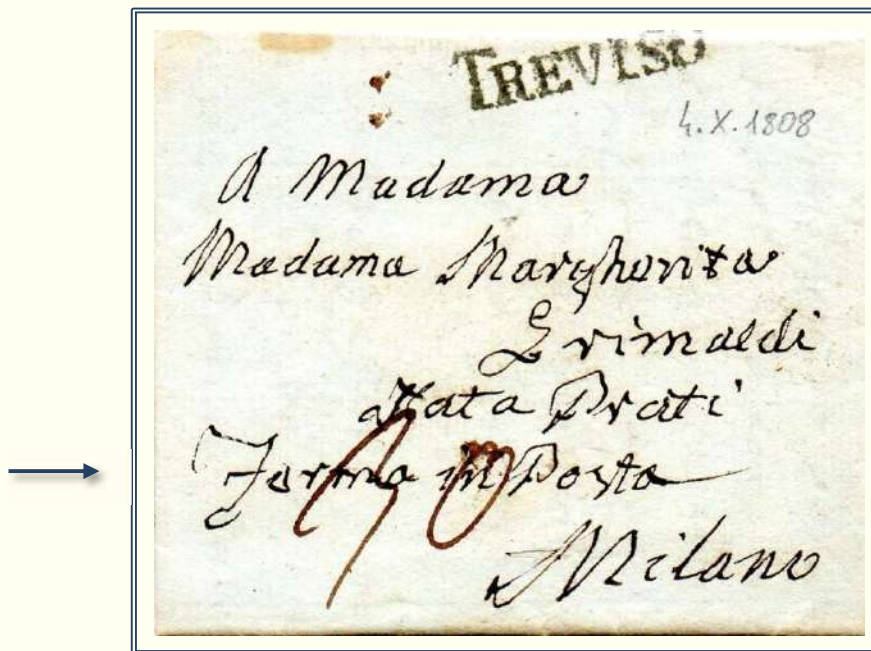 TREVISO
4.X.1808
A Madama
Madama Margherita
Grimaldi
Nata Prati
Ferma in Posta
Milano